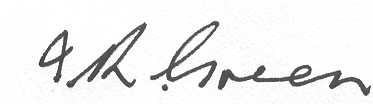 J R Green